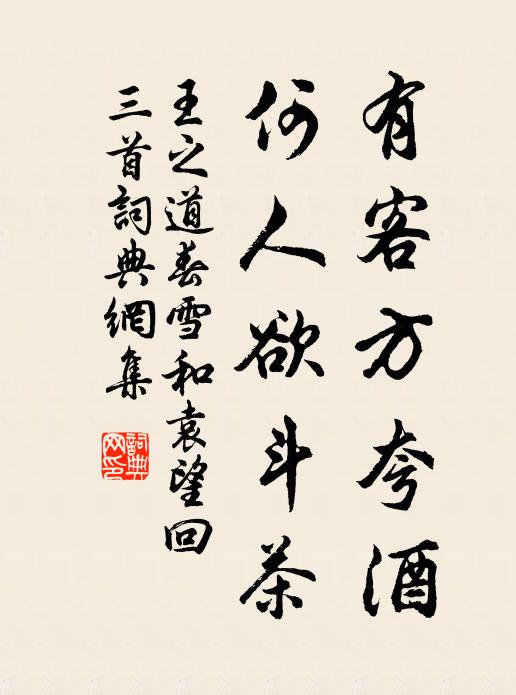 有客方夸酒
何人欲斗茶
王之道春雪和袁望回
三首詞典網集
詞典
网印